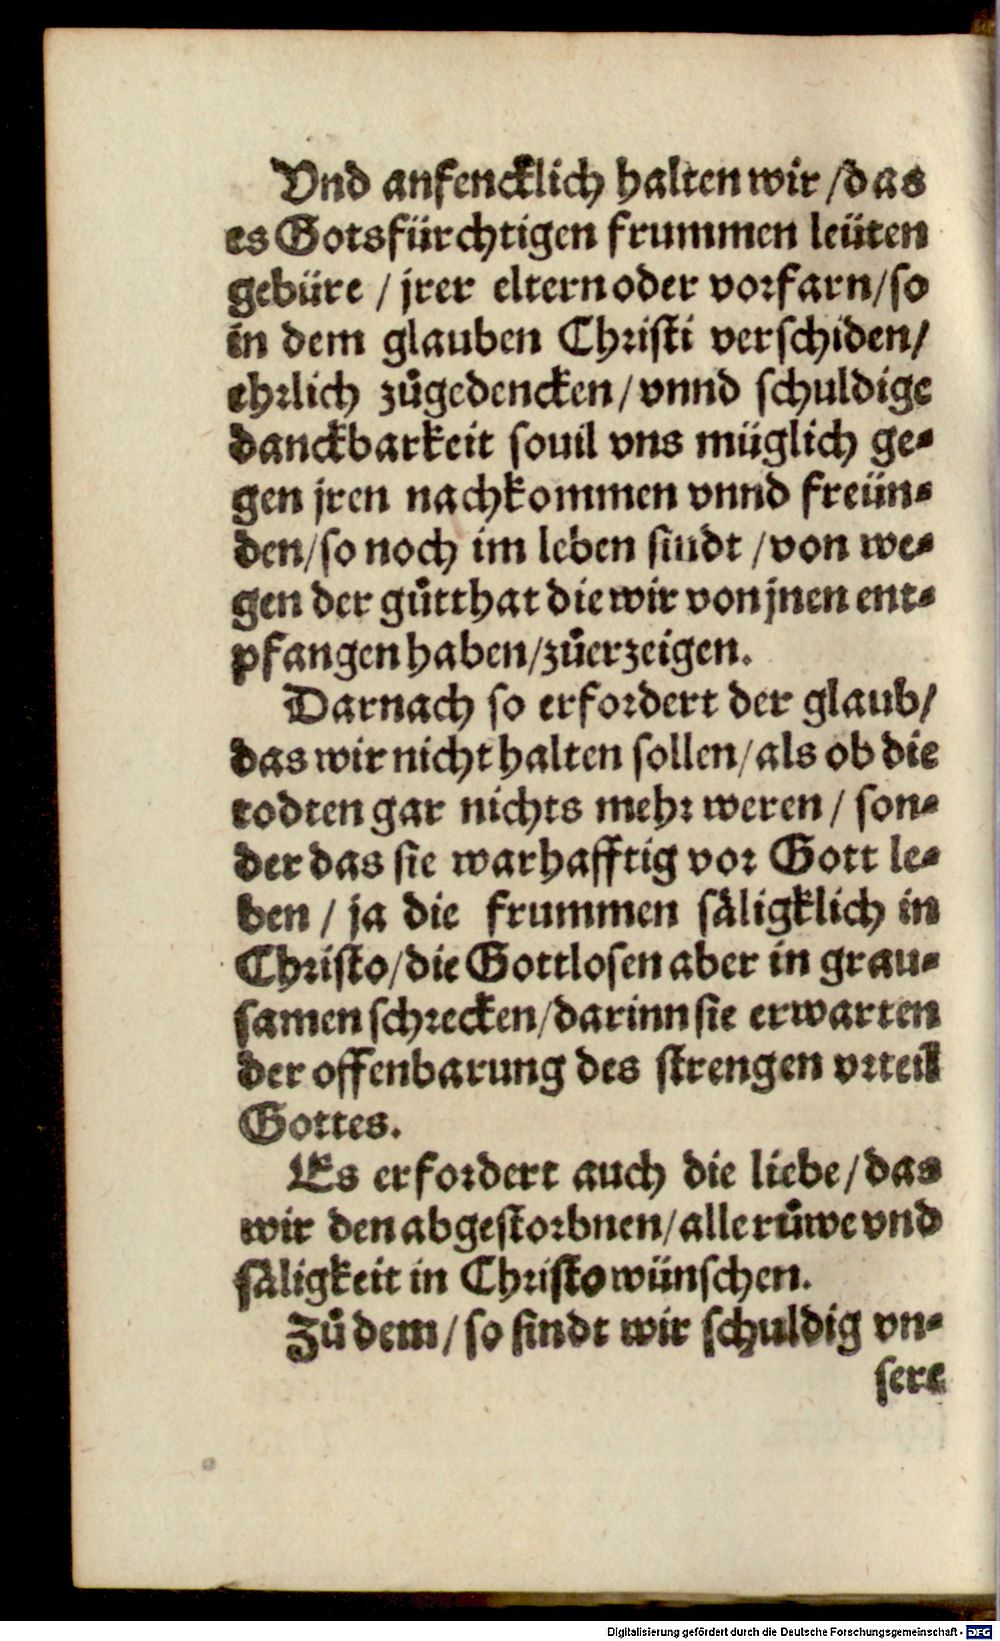 Vnd anfencklich halten wir / das
es Gotsfürchtigen frummen leüten
gebüre / jrer eltern oder vorfarn / so
in dem glauben Christi verschiden /
ehrlich zůgedencken / vnnd schuldige
danckbarkeit souil vns müglich ge-
gen jren nachkommen vnnd freün-
den / so noch im leben sindt / von we-
gen der gůtthat die wir von jnen ent-
pfangen haben / zůerzeigen.
Darnach so erfordert der glaub /
das wir nicht halten sollen / als ob die
todten gar nichts mehr weren / son-
der das sie warhafftig vor Gott le-
ben / ja die frummen säligklich in
Christo / die Gottlosen aber in grau-
samen schrecken / darinn sie erwarten
der offenbarung des strengen vrteil
Gottes.
Es erfordert auch die liebe / das
wir den abgestorbnen / alle růwe vnd
säligkeit in Christo wünschen.
Zů dem / so sindt wir schuldig vn-
sere
Digitalisierung gefördert durch die Deutsche Forschungsgemeinschaft - DFG